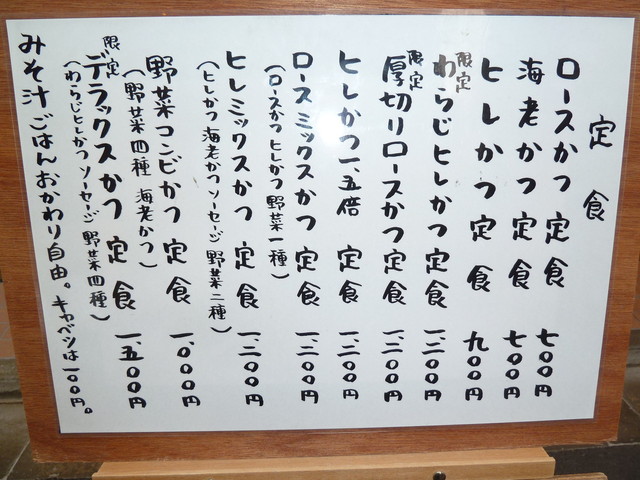 定食
ロースかつ定食 七〇〇円
海老かつ定食 七〇〇円
ヒレかつ定食 九〇〇円
限定 わらじヒレかつ定食 一、二〇〇円
限定 厚切りロースかつ定食 一、二〇〇円
ヒレかつ一、五倍 定食 一、二〇〇円
ロースミックスかつ定食 一、二〇〇円
（ロースかつ ヒレかつ 野菜一種）
ヒレミックスかつ 定食 一、二〇〇円
（ヒレかつ 海老かつ ソーセージ 野菜二種）
野菜コンビかつ 定食 一、〇〇〇円
（野菜四種 海老かつ）
限定 デラックスかつ 定食 一、五〇〇円
（わらじヒレかつ ソーセージ 野菜四種）
みそ汁ごはんおかわり自由。キャベツは一〇〇円。